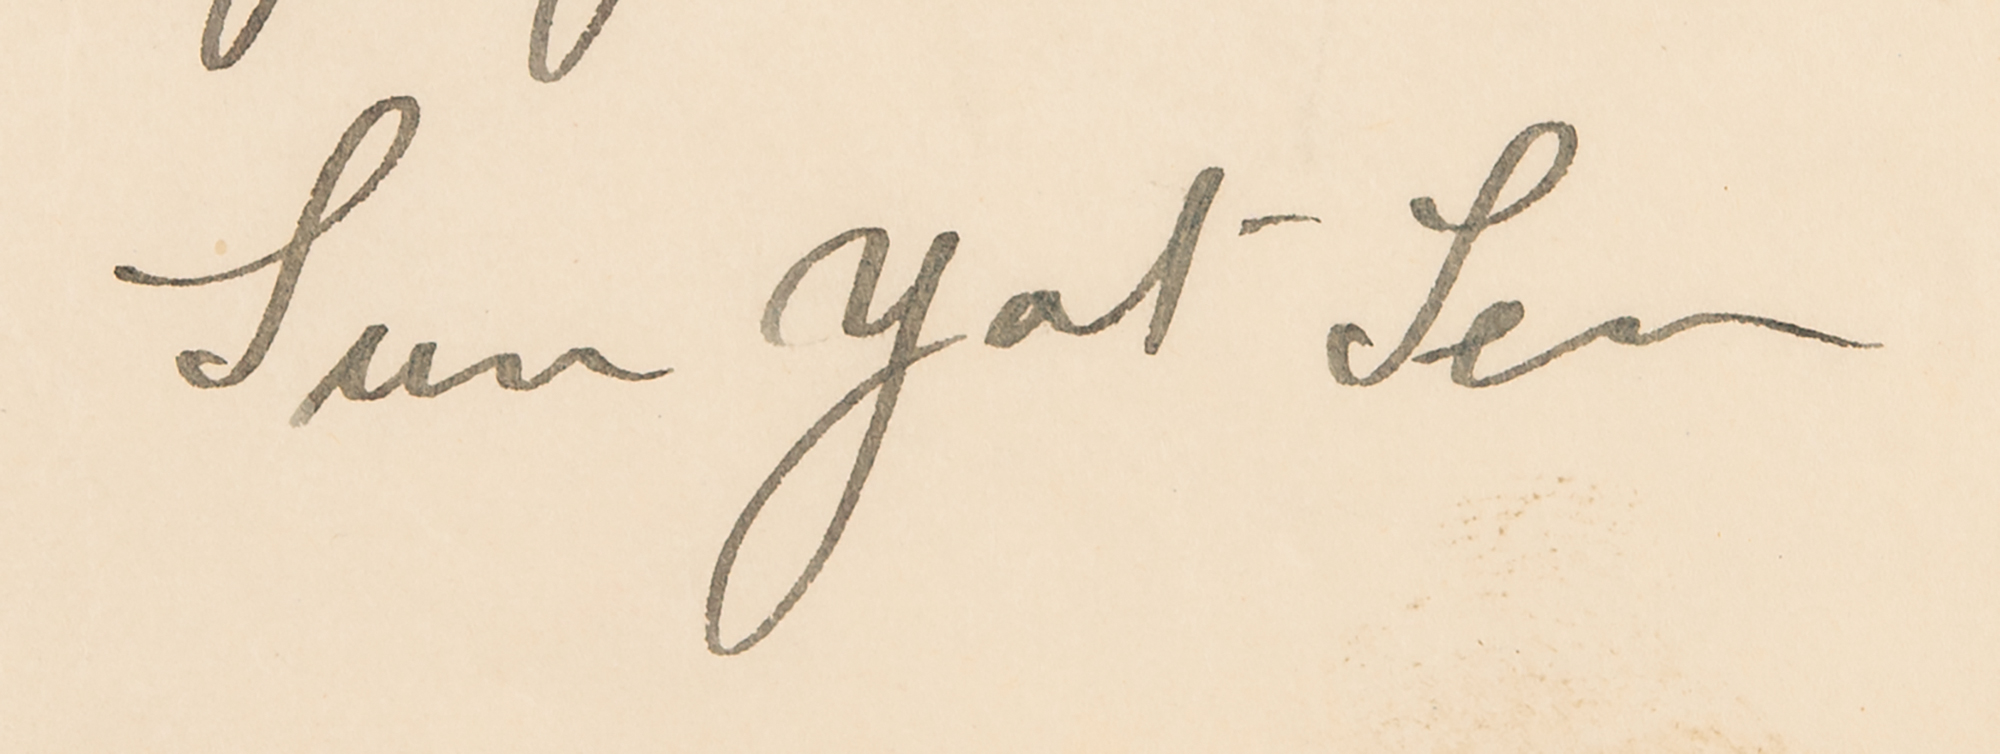 Sun Yat Sen